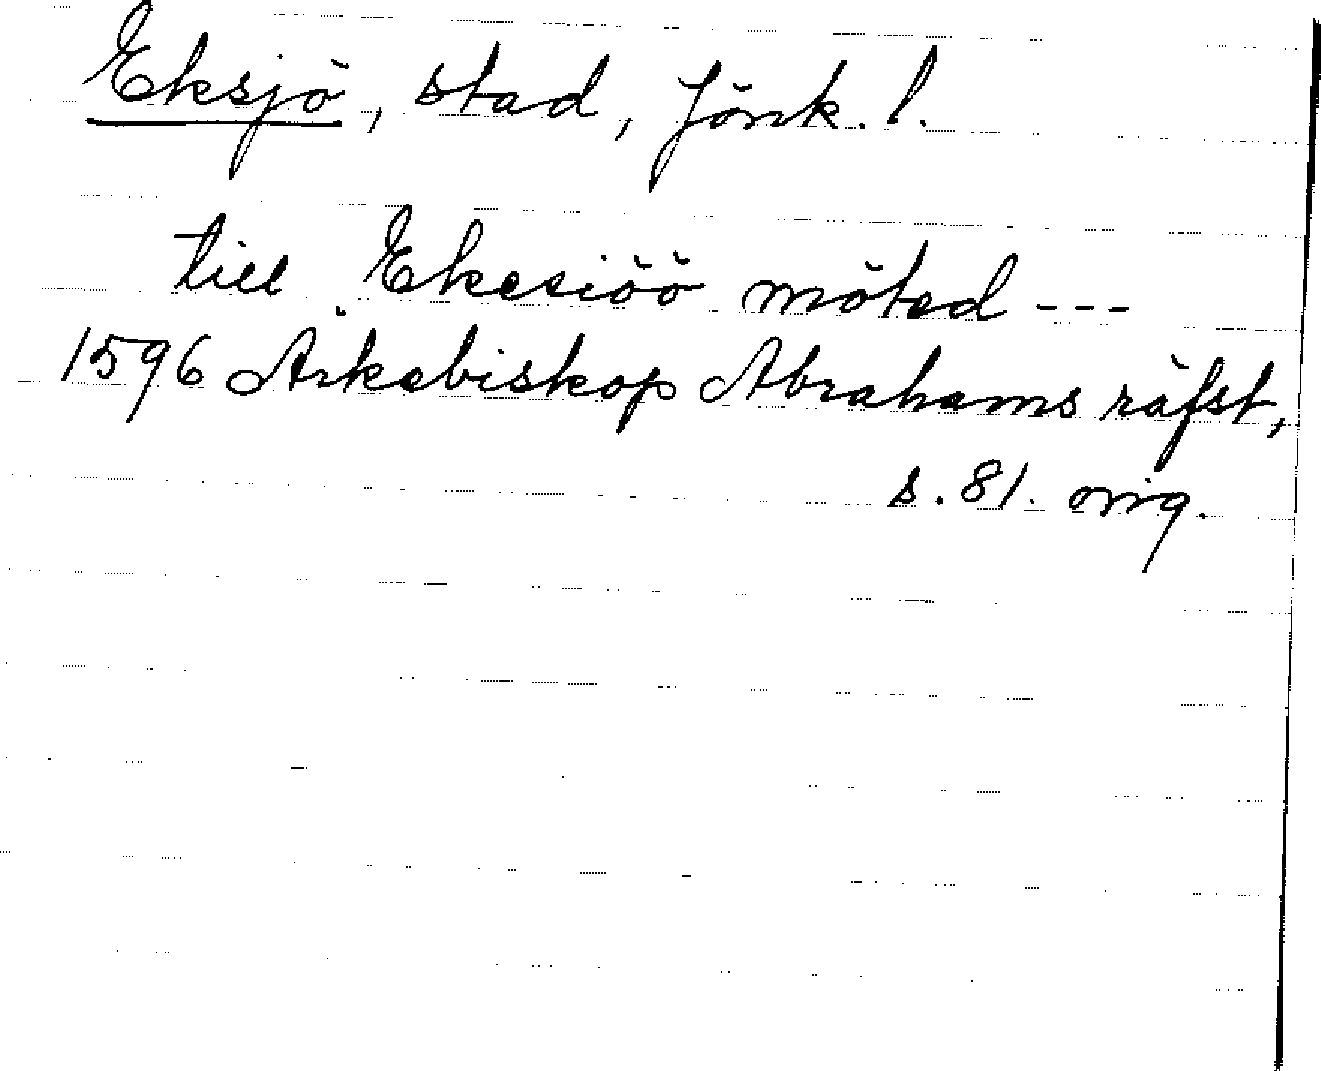 Eksjö, stad, Jönk. l.
till Ekesiöö möted ---
1596 Ärkebiskop Abrahams räfst,
s. 81. orig.